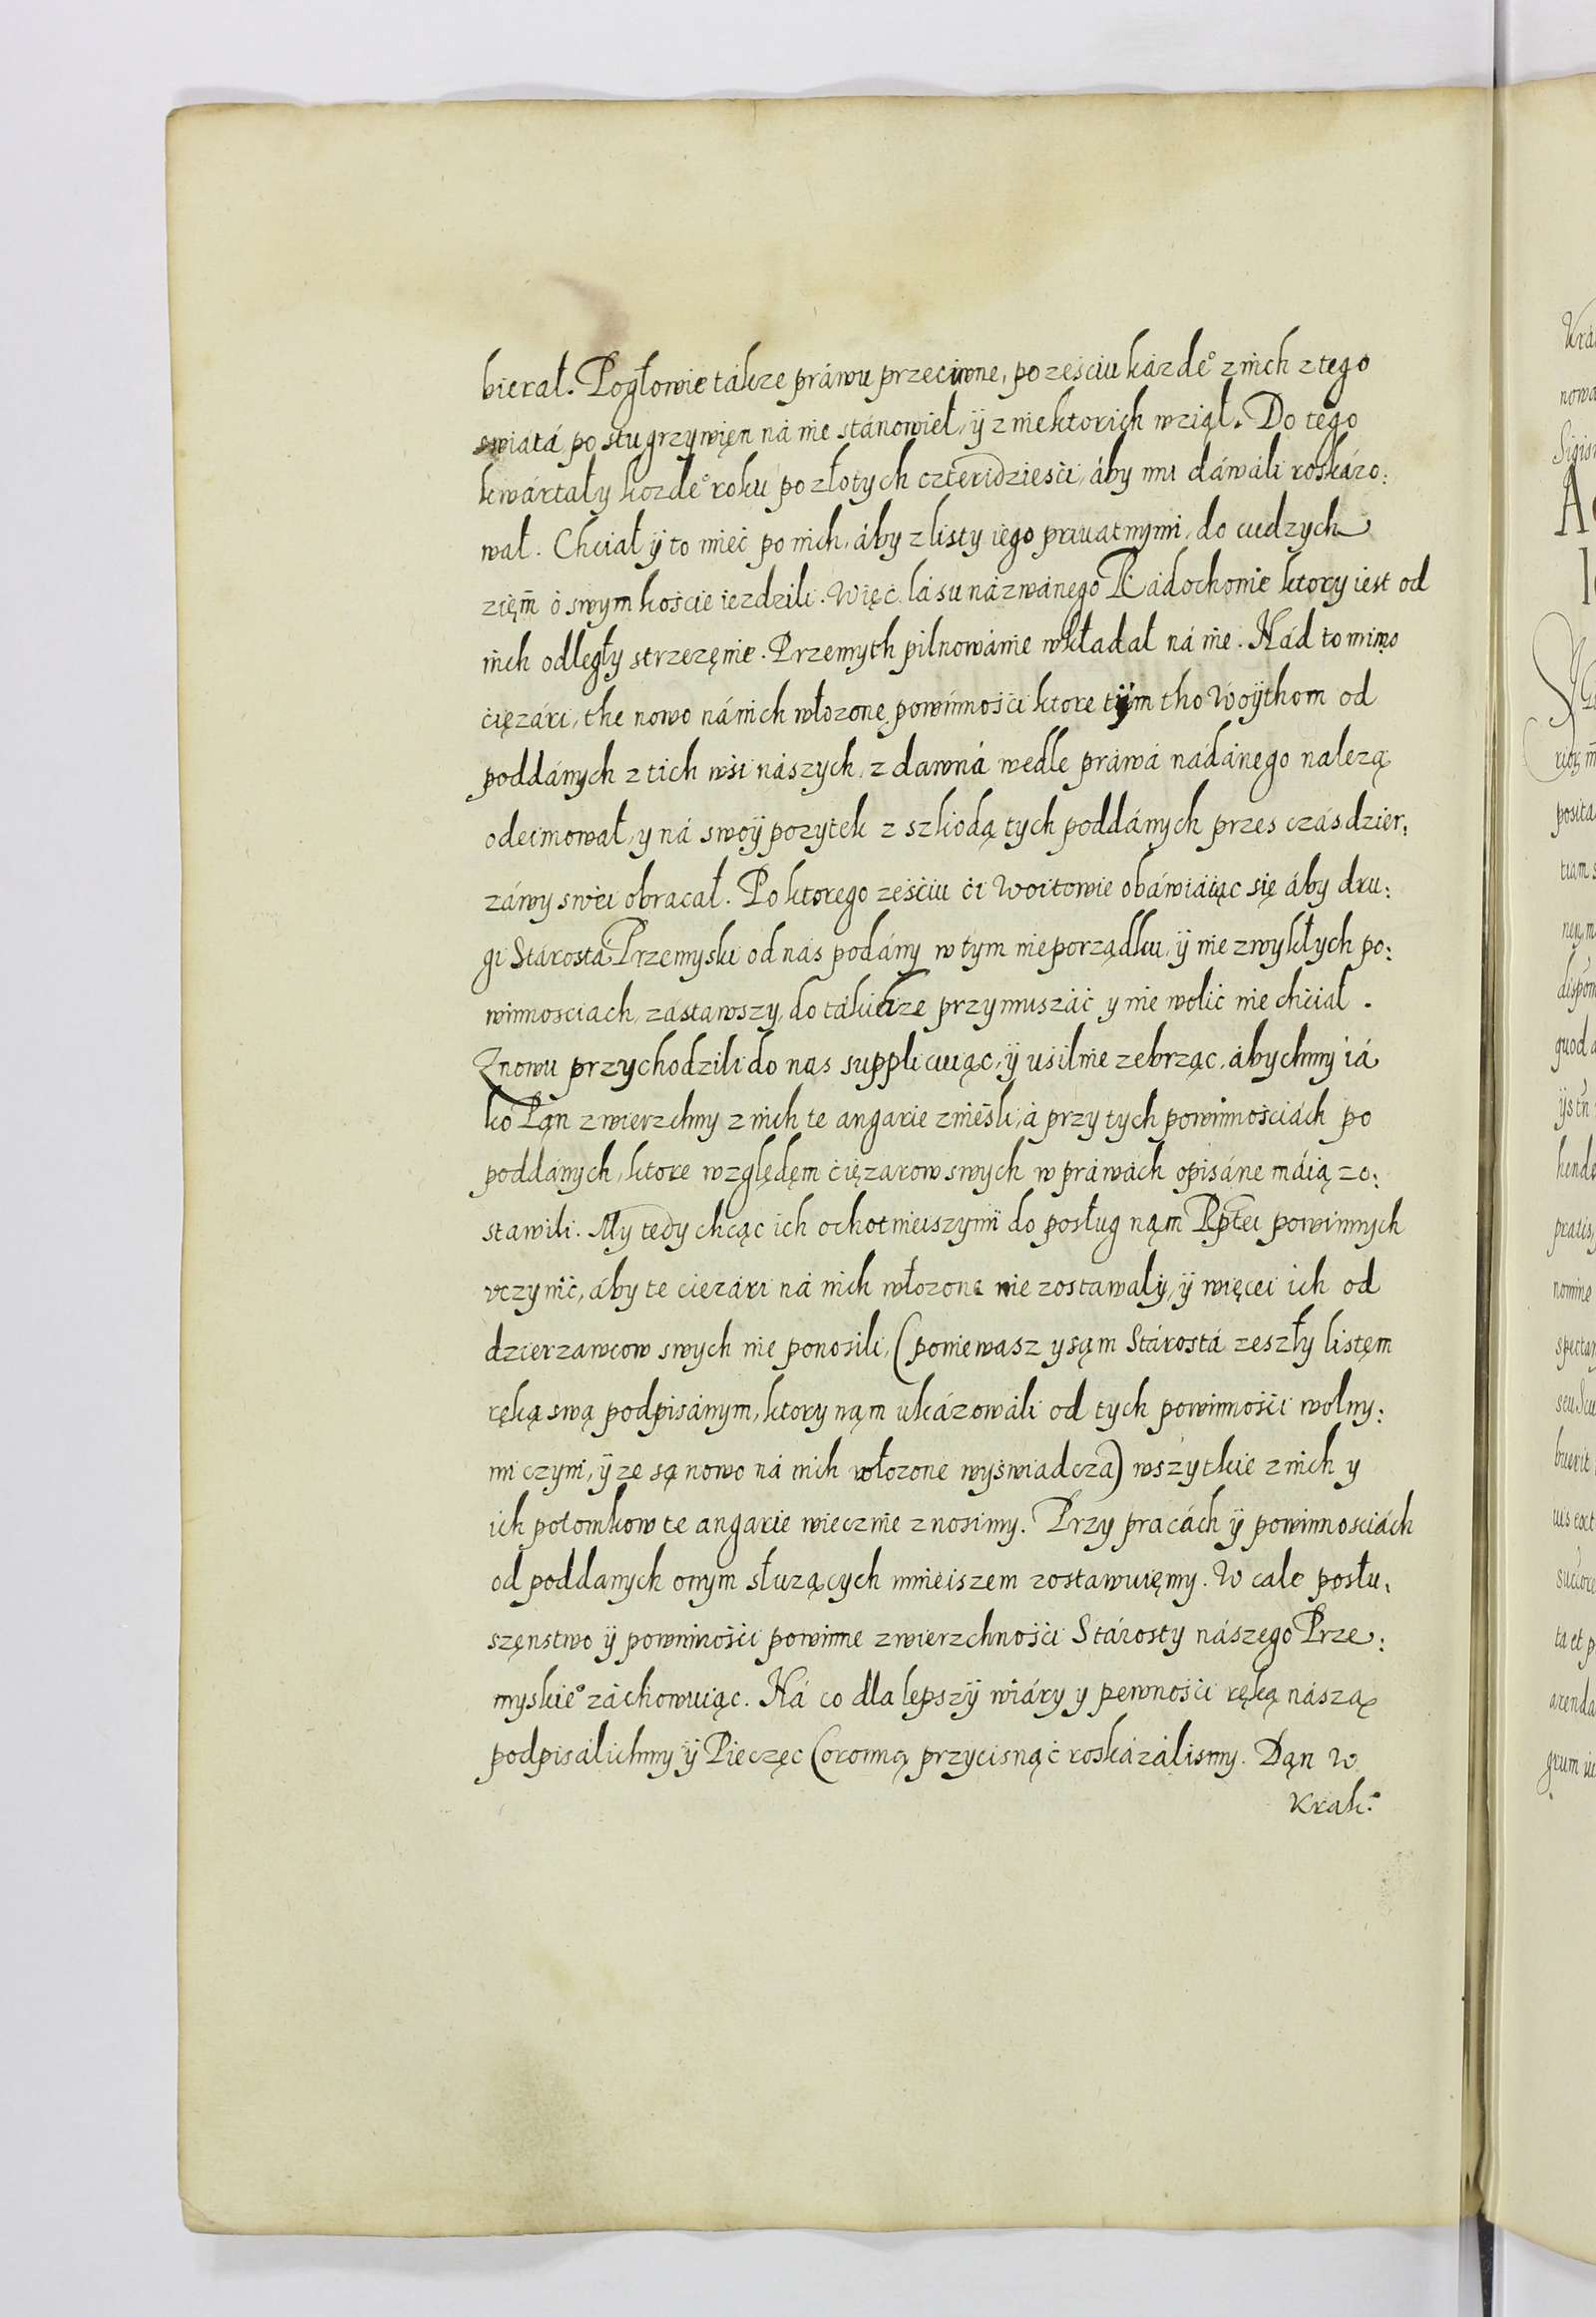 bierał. Pogłowie tákze práwu przeciwne, po ześciu káżde° z nich z tego
swiatá po stu grzywięn ná nie stánowieł, ÿ z niektorich wziął. Do tego
kwártały kozde° roku po złotych czteridzieści, áby mu dáwáli roskázo:
wał. Chciał ÿ to mieć po nich, áby z listy iego priuatnymi, do cudzych
zięm̄ o swym koście iezdzili. Więc lásu názwánego Rádochonie ktory iest od
nich odległy strzezęnie. Przemyth pilnowánie wkładał ná nie. Nád to mimo
ciężári, the nowo ná nich włozone, powinności ktore tÿm tho Woÿthom od
poddánych z tich wsi nászych, z dawná wedle práwá nadánego nalezą
odeimował, y ná swoÿ pozytek z szkodą tych poddánych przes czás dzier:
záwy swei obracał. Po ktorego ześciu ci Woitowie obáwiáiąc się áby dru:
gi Stárostá Przemyski od nas podány w tym nieporządku, ÿ niezwykłych po:
winnosciach, zástawszy, do tákichze przymuszáć y niewolić nie chciał.
Znowu przychodzili do nas supplicuiąc, ÿ usilnie zebrząc, ábychmy iá
ko Pąn zwierzchny z nich te angarie znieśli, á przy tych powinnościách po
poddánych, ktore względęm ciężarow swych w práwách opisáne máią zo:
stawili. My tedy chcąc ich ochotnieiszymi do posług nąm Rptei powinnych
vczynić, áby te ciezári ná nich włozone nie zostawały, ÿ więcei ich od
dzierzawcow swych nie ponosili, (poniewasz y sąm Stárostá zeszły listęm
ręką swą podpisánym, ktory nąm ukázowáli od tych powinności wolny:
mi czyni, ÿ ze są nowo ná nich włozone wyświadcza) wszytkie z nich y
ich potomkow te angarie wiecznie znosimy. Przy pracách ÿ powinnosciách
od poddanych onym słuzących ninieiszem zostawuięmy. W cale posłu:
szęnstwo ÿ powinności powinne zwierzchności Stárosty nászego Prze:
myskie° záchowuiąc. Ná co dla lepszÿ wiáry y pewności ręką nászą
podpisálichmy ÿ Pieczęc Coronną przycisnąć roskázálismy. Dąn W
Krak:°